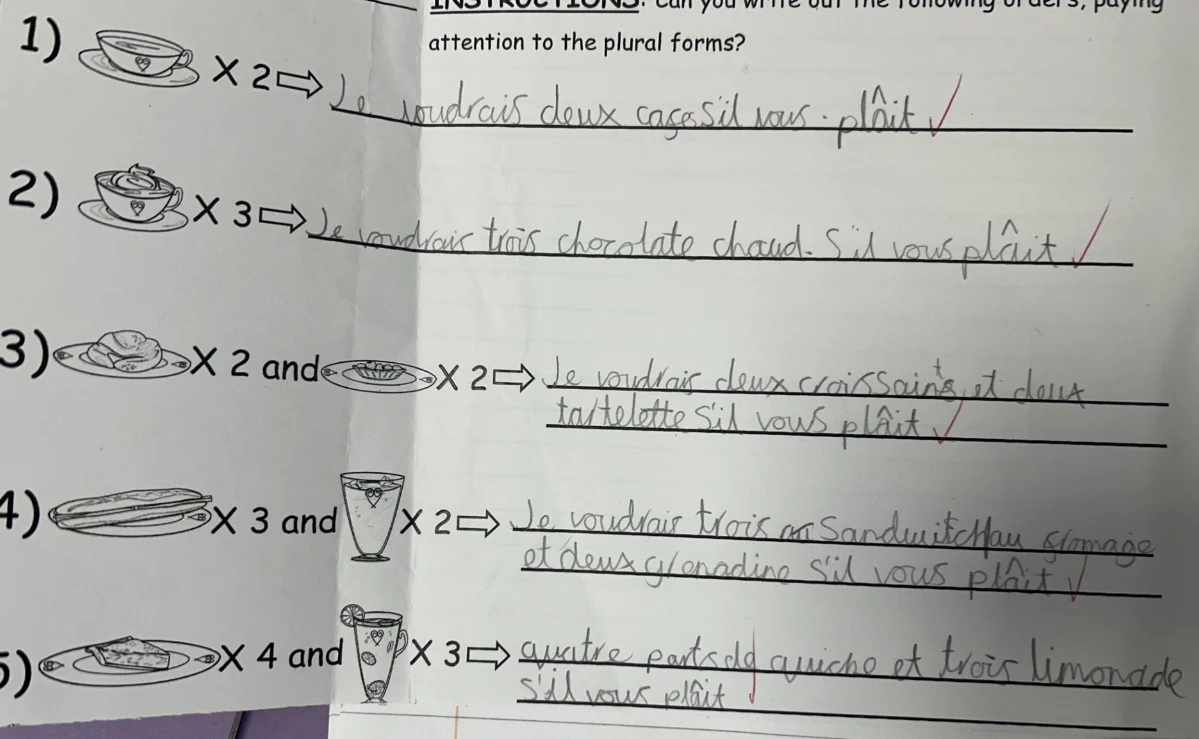 INSTRUCTIONS: Can you write out the following orders, paying
attention to the plural forms?
1) X 2 Je voudrais deux cafes s'il vous. plâit
2) X 3 Je voudrais trois chocolate chaud. S'il vous plâit
3) X 2 and X 2 Je voudrais deux croissaints, et deux
tartelette s'il vous plâit
4) X 3 and X 2 Je voudrais trois sandwitch au fromage
et deux grenadine s'il vous plâit
5) X 4 and X 3 quatre parts de quiche et trois limonade
s'il vous plâit